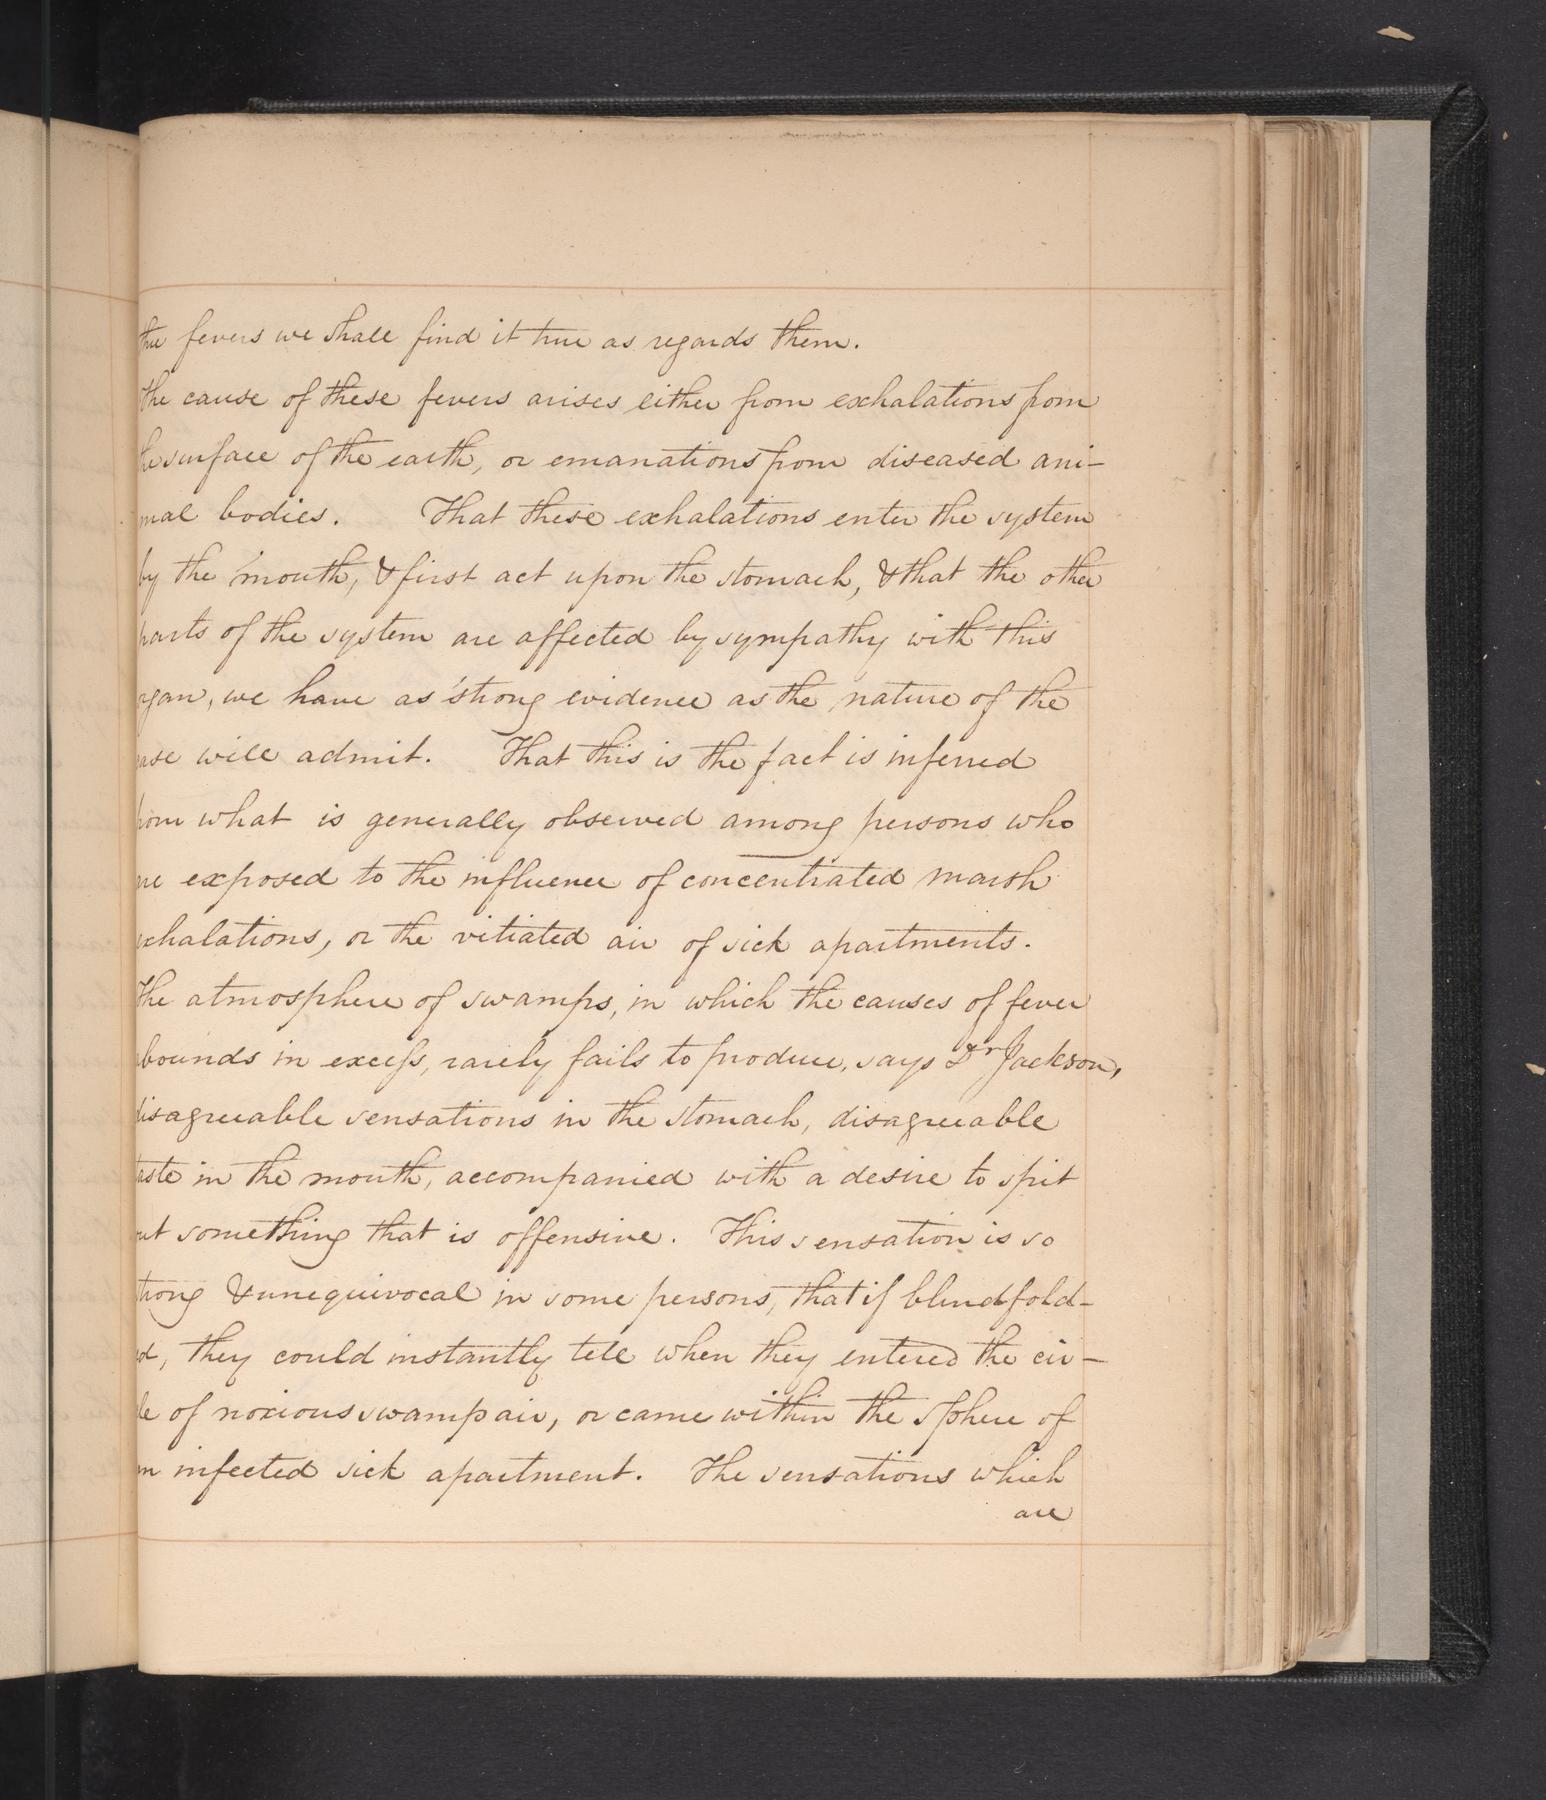 the fevers we shall find it true as regards them.
The cause of these fevers arises either from exhalations from
the surface of the earth, or emanations from diseased ani-
mal bodies. That these exhalations enter the system
by the mouth, & first act upon the stomach, & that the other
parts of the system are affected by sympathy with this
rgan, we have as strong evidence as the nature of the
ase will admit. That this is the fact is inferred
from what is generally observed among persons who
are exposed to the influence of concentrated marsh
xhalations, or the vitiated air of sick apartments.
The atmosphere of swamps, in which the causes of fever
bounds in excess, rarely fails to produce, says Dr Jackson,
disagreeable sensations in the stomach, disagreeable
taste in the mouth, accompanied with a desire to spit
ut something that is offensive. This sensation is so
trong & unequivocal in some persons, that if blindfold-
ed, they could instantly tell when they entered the cir-
le of noxious swamp air, or came within the sphere of
n infected sick apartment. The sensations which
are